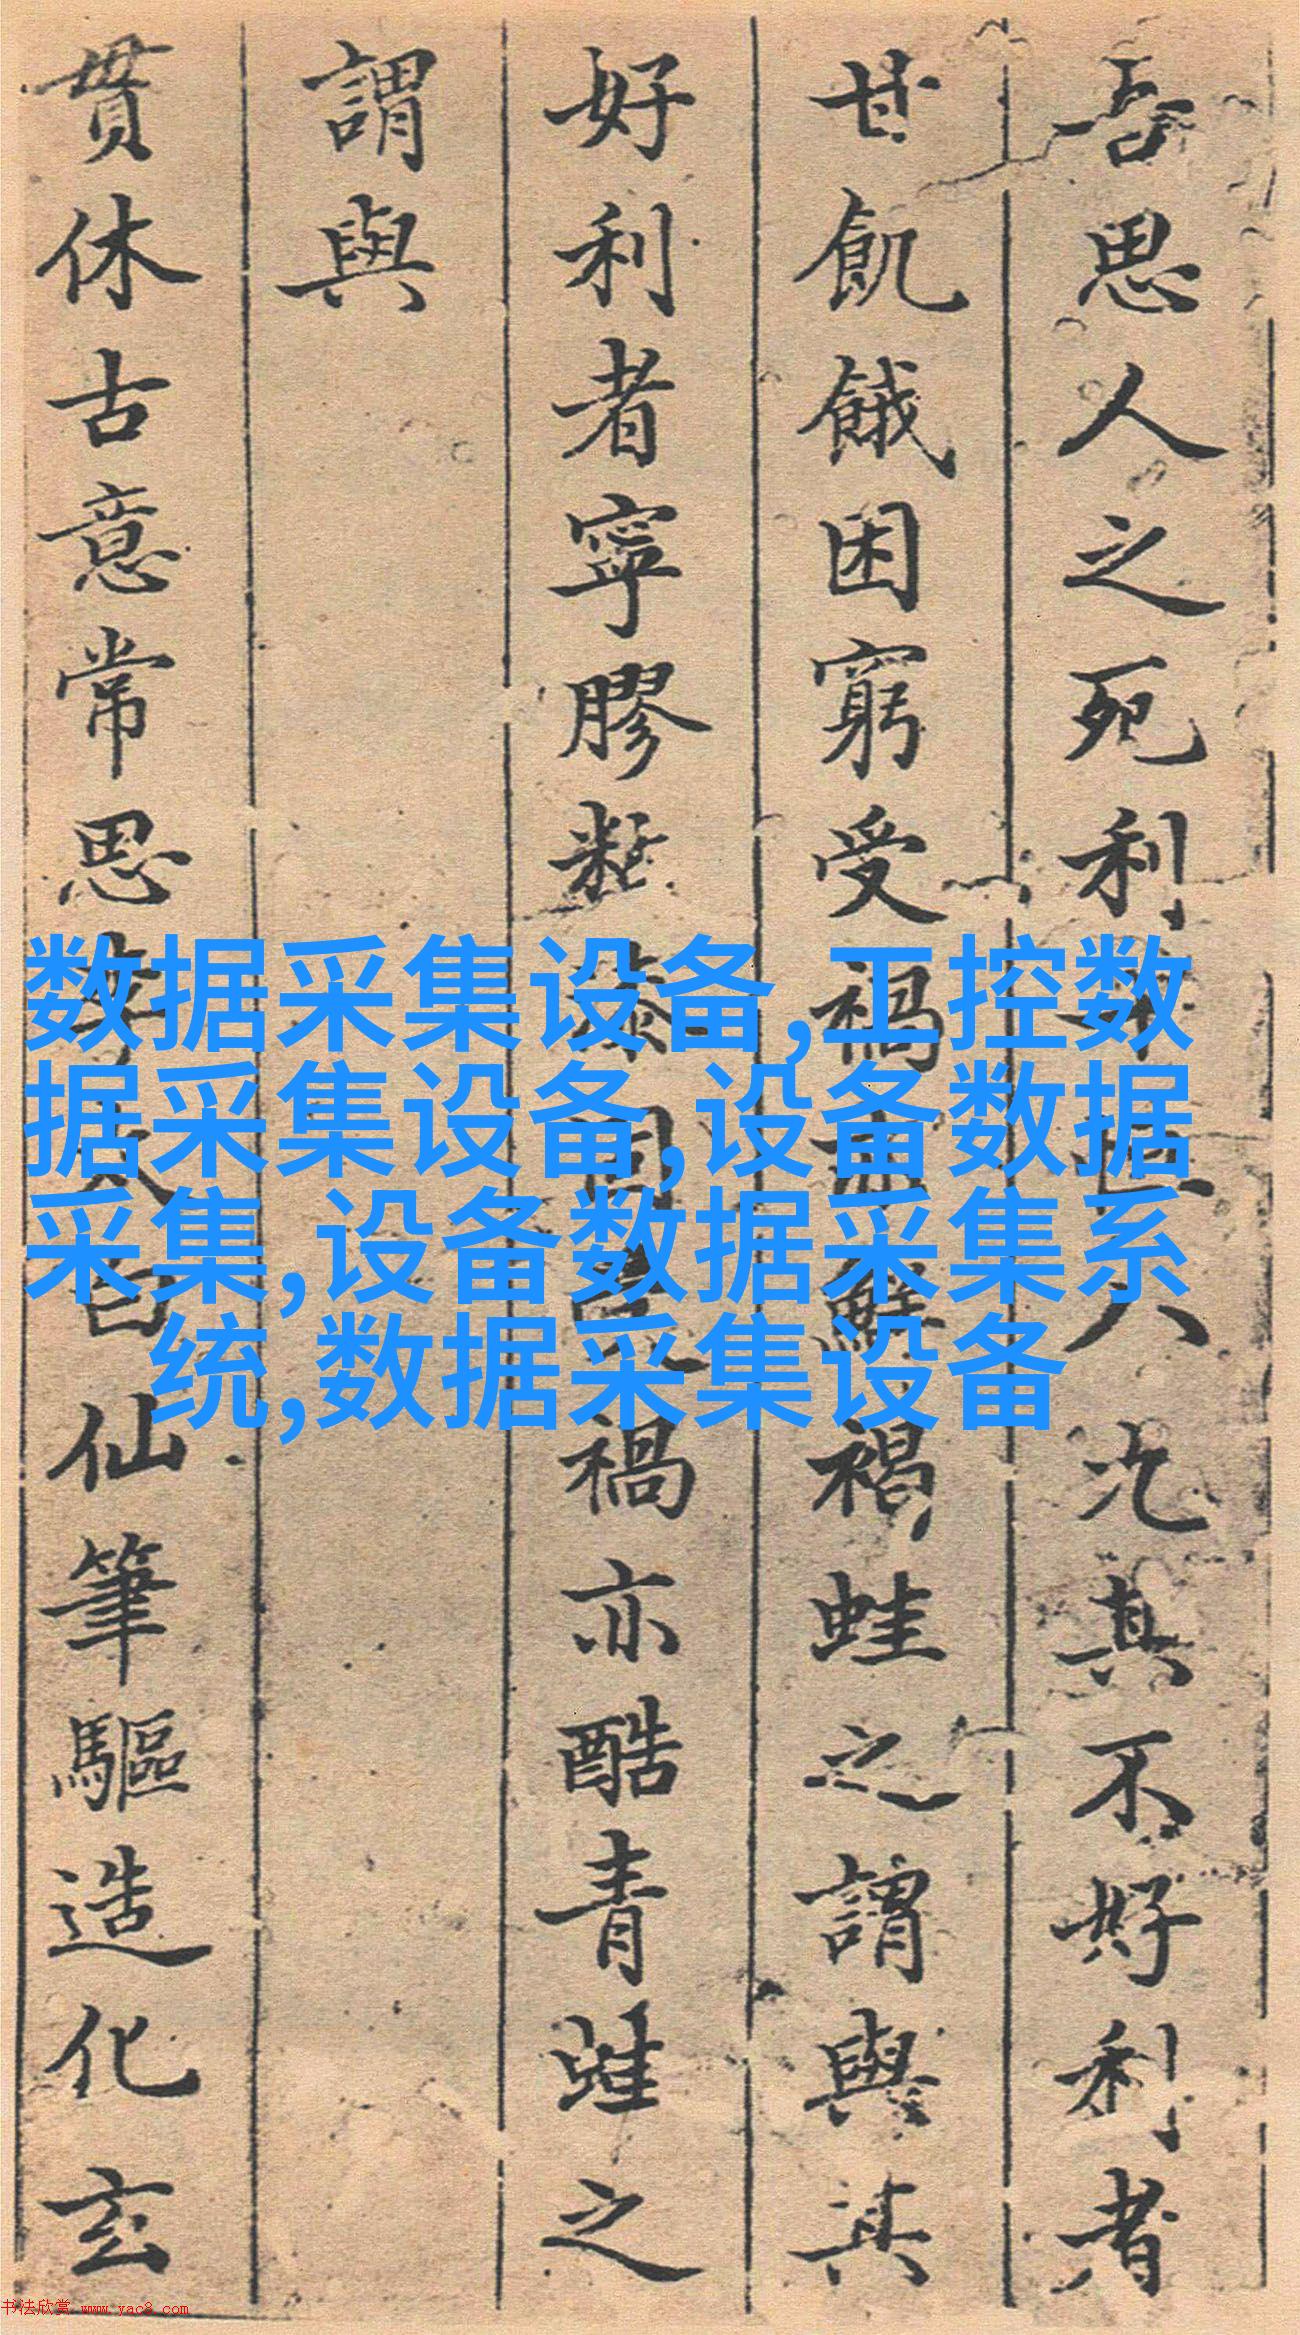 吾思人之死利
人汔其不好利者
甘飢餓困窮受禍亦鮮褐蛙之謂與其
好利者寧膠
同
禍亦酷青蛙之
謂與
貫休古意常思李太白仙筆驅造化玄
数据采集设备,工控数
据采集设备,设备数据
采集,设备数据采集系
统,数据采集设备
书法欣赏 www.yac8.com